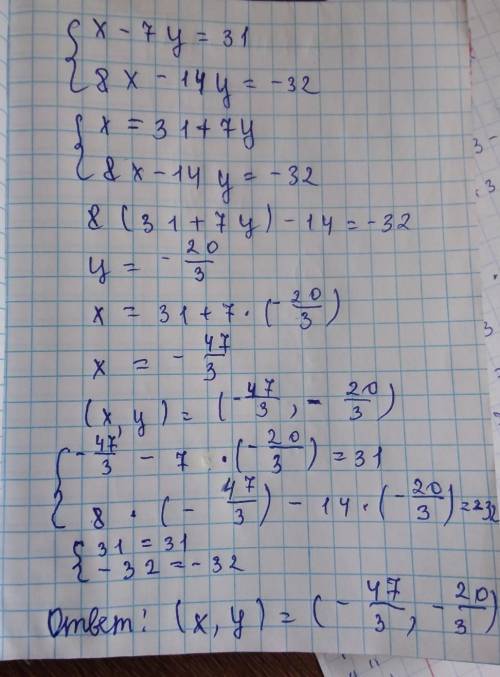 { x - 7y = 31
8x - 14y = -32
{ x = 31 + 7y
8x - 14y = -32
8(31 + 7y) - 14 = -32
y = -20/3
x = 31 + 7 · (-20/3)
x = -47/3
(x, y) = (-47/3, -20/3)
{ -47/3 - 7 · (-20/3) = 31
8 · (-47/3) - 14 · (-20/3) =
{ 31 = 31
-32 = -32
Ответ: (x, y) = (-47/3, -20/3)